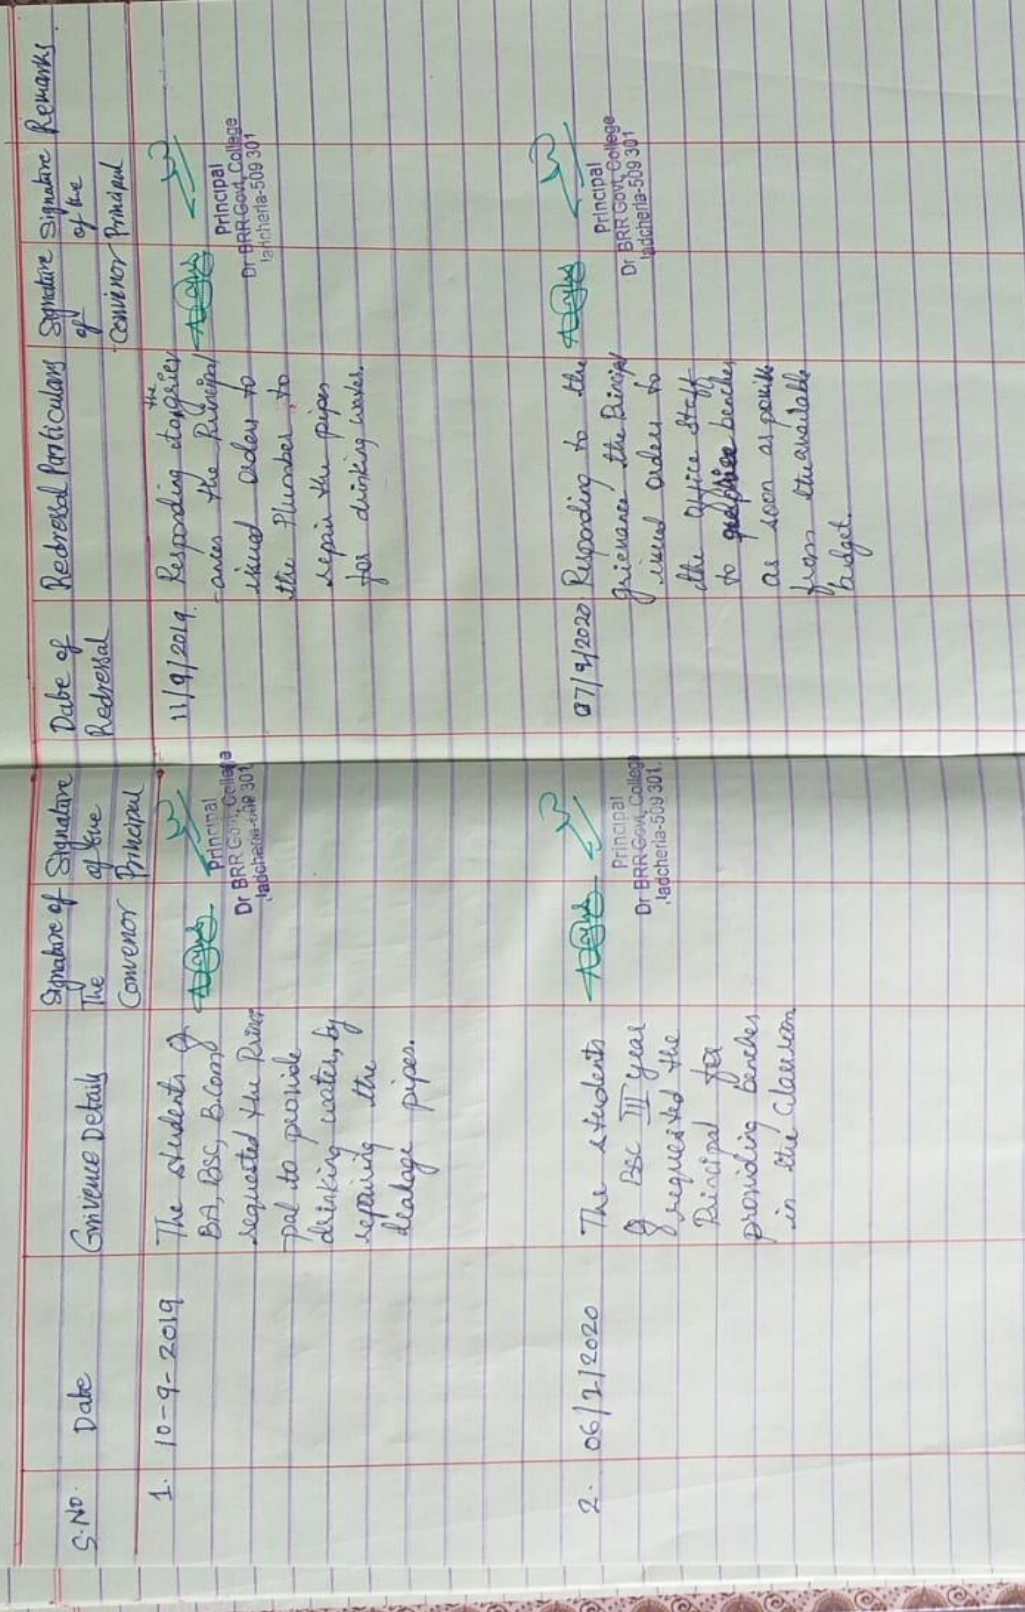 S.No.
Date
Grivence Details
Signature of
The
Convenor
Signature
of the
Principal
Date of
Redressal
Redressal Particulars
Signature
of
Convenor
Signature
of the
Principal
Remarks.
1.
10-9-2019
The students of
BA, BSC, B.Com
requested the Princi
pal to provide
drinking water, by
repairing the
leakage pipes.
Principal
Dr BRR Govt. College
Jadcherla-509 301
11/9/2019.
Responding the griev
-ances the Principal
issued orders to
the Plumber, to
repair the pipes
for drinking water.
Principal
Dr BRR Govt. College
Jadcherla-509 301
2.
The students
of BSC III year
requested the
Principal for
providing benches
in the Classroom
Principal
Dr BRR Govt. College
Jadcherla-509 301.
Responding to the
grievance the Principal
issued orders to
the office staff
to benches
as soon as possible
from the available
budget.
Principal
Dr BRR Govt. College
Jadcherla-509 301